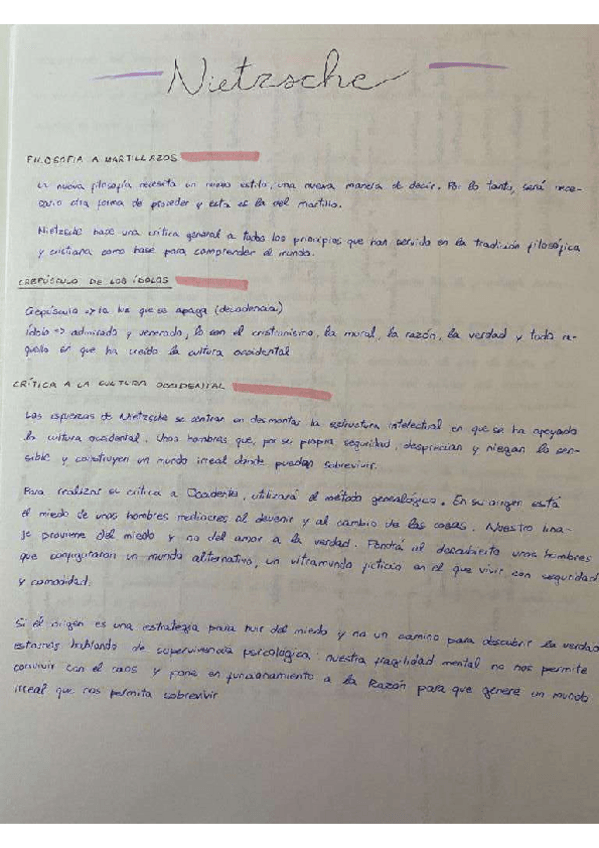 Nietzsche
FILOSOFÍA A MARTILLAZOS
La nueva filosofía necesita un nuevo estilo, una nueva manera de decir. Por lo tanto, será nece-
sario otra forma de proceder y esta es la del martillo.
Nietzsche hace una crítica general a todos los principios que han servido en la tradición filosófica
y cristiana como base para comprender el mundo.
CREPÚSCULO DE LOS ÍDOLOS
Crepúsculo => la luz que se apaga (decadencia)
Ídolo => admirado y venerado, lo son el cristianismo, la moral, la razón, la verdad y todo a-
quello en que ha creído la cultura occidental
CRÍTICA A LA CULTURA OCCIDENTAL
Los esfuerzos de Nietzsche se centran en desmontar la estructura intelectual en que se ha apoyado
la cultura occidental. Unos hombres que, por su propia seguridad, desprecian y niegan lo sen-
sible y construyen un mundo irreal donde puedan sobrevivir.
Para realizar su crítica a Occidente, utilizará el método genealógico. En su origen está
el miedo de unos hombres mediocres al devenir y al cambio de las cosas. Nuestro lina-
je proviene del miedo y no del amor a la verdad. Pondrá al descubierto unos hombres
que configuraron un mundo alternativo, un ultramundo ficticio en el que vivir con seguridad
y comodidad.
Si el origen es una estrategia para huir del miedo y no un camino para descubrir la verdad
estamos hablando de supervivencia psicológica: nuestra fragilidad mental no nos permite
convivir con el caos y pone en funcionamiento a la Razón para que genere un mundo
irreal que nos permita sobrevivir